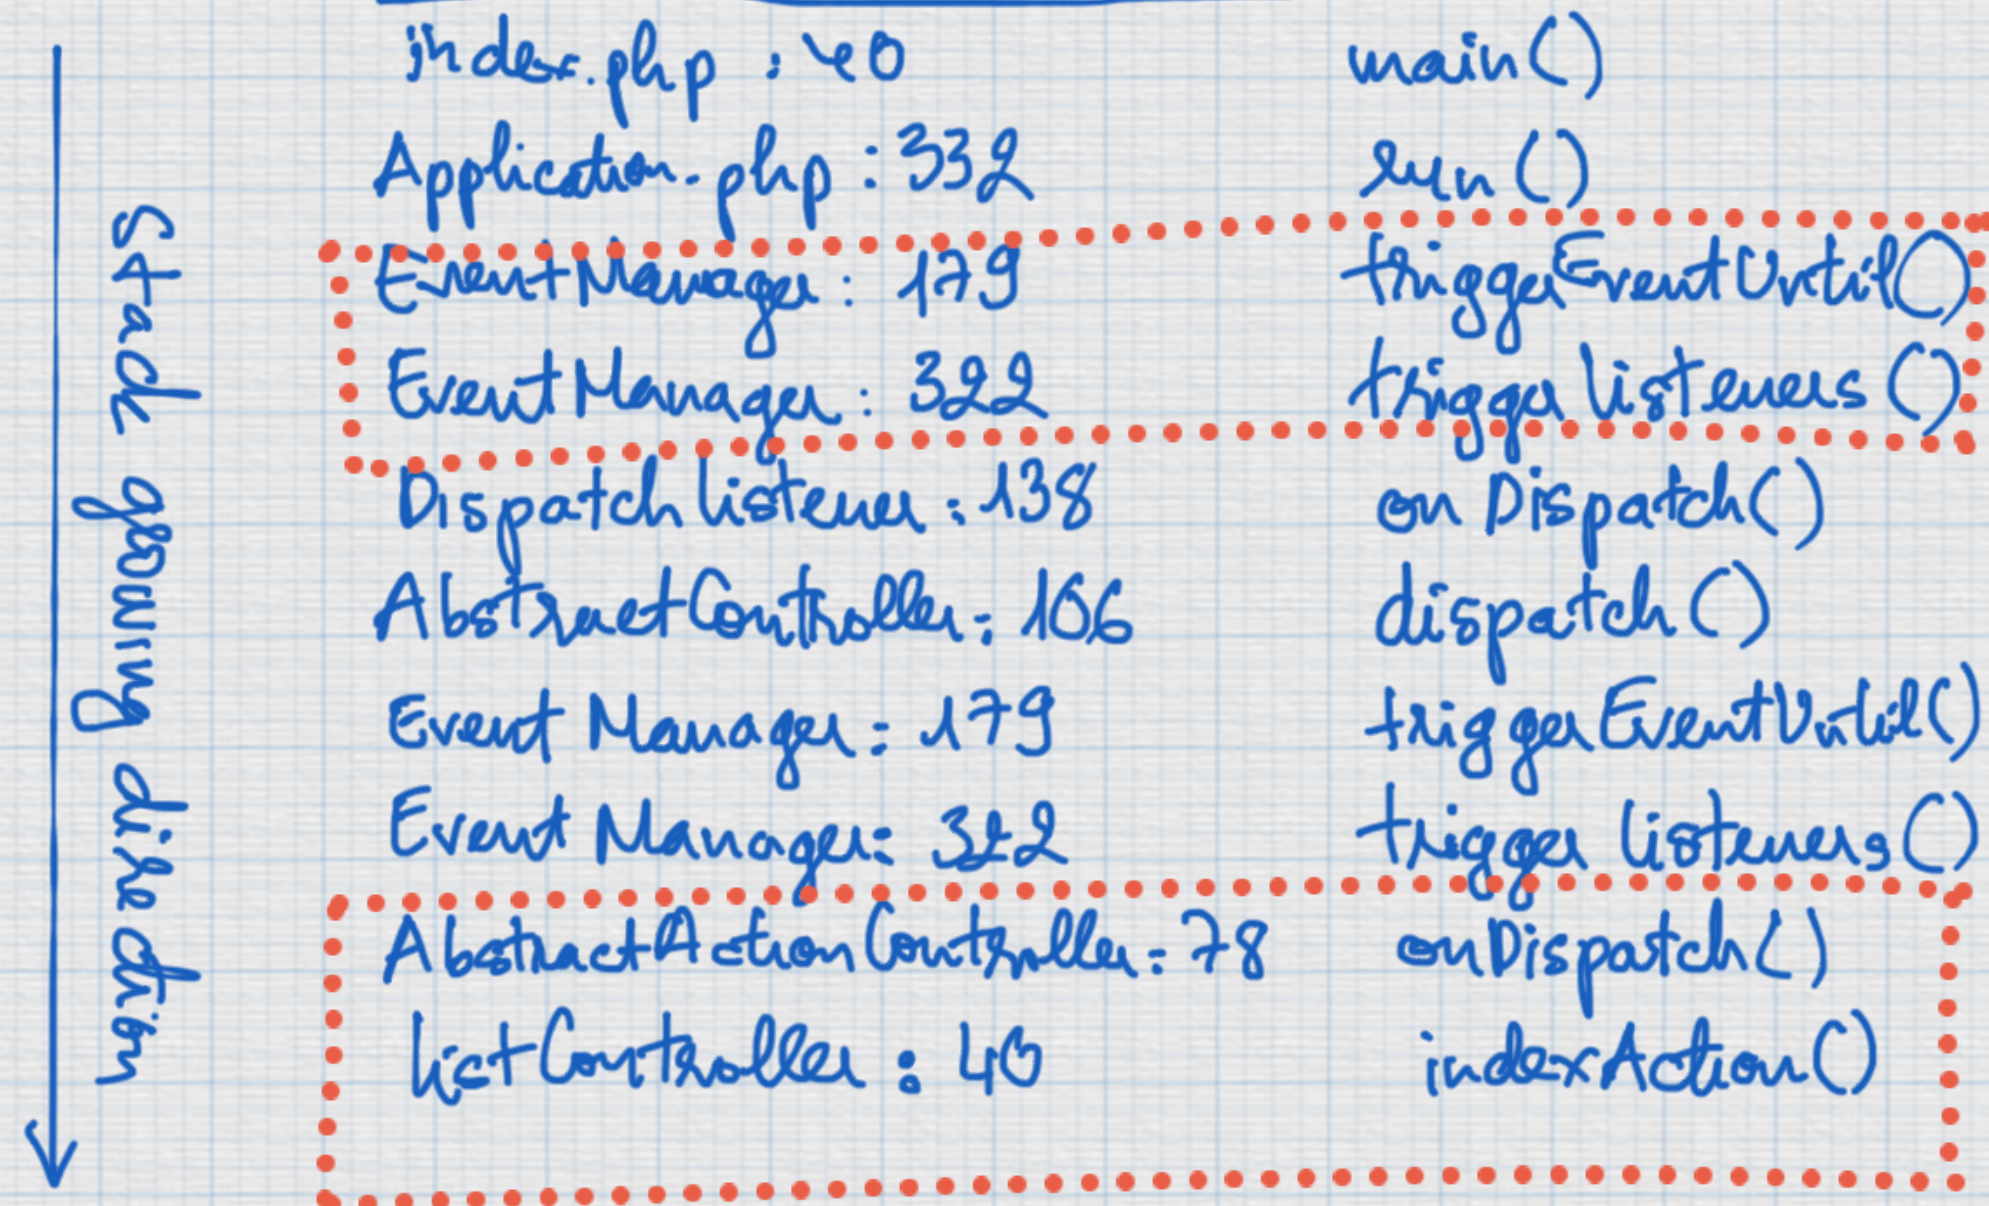 index.php : 40 main()
Application.php : 332 run()
EventManager : 179 triggerEventUntil()
EventManager : 322 triggerListeners()
DispatchListener : 138 onDispatch()
AbstractController : 166 dispatch()
Event Manager : 179 triggerEventUntil()
Event Manager : 322 triggerListeners()
AbstractActionController : 78 onDispatch()
ListController : 40 indexAction()
stack growing direction